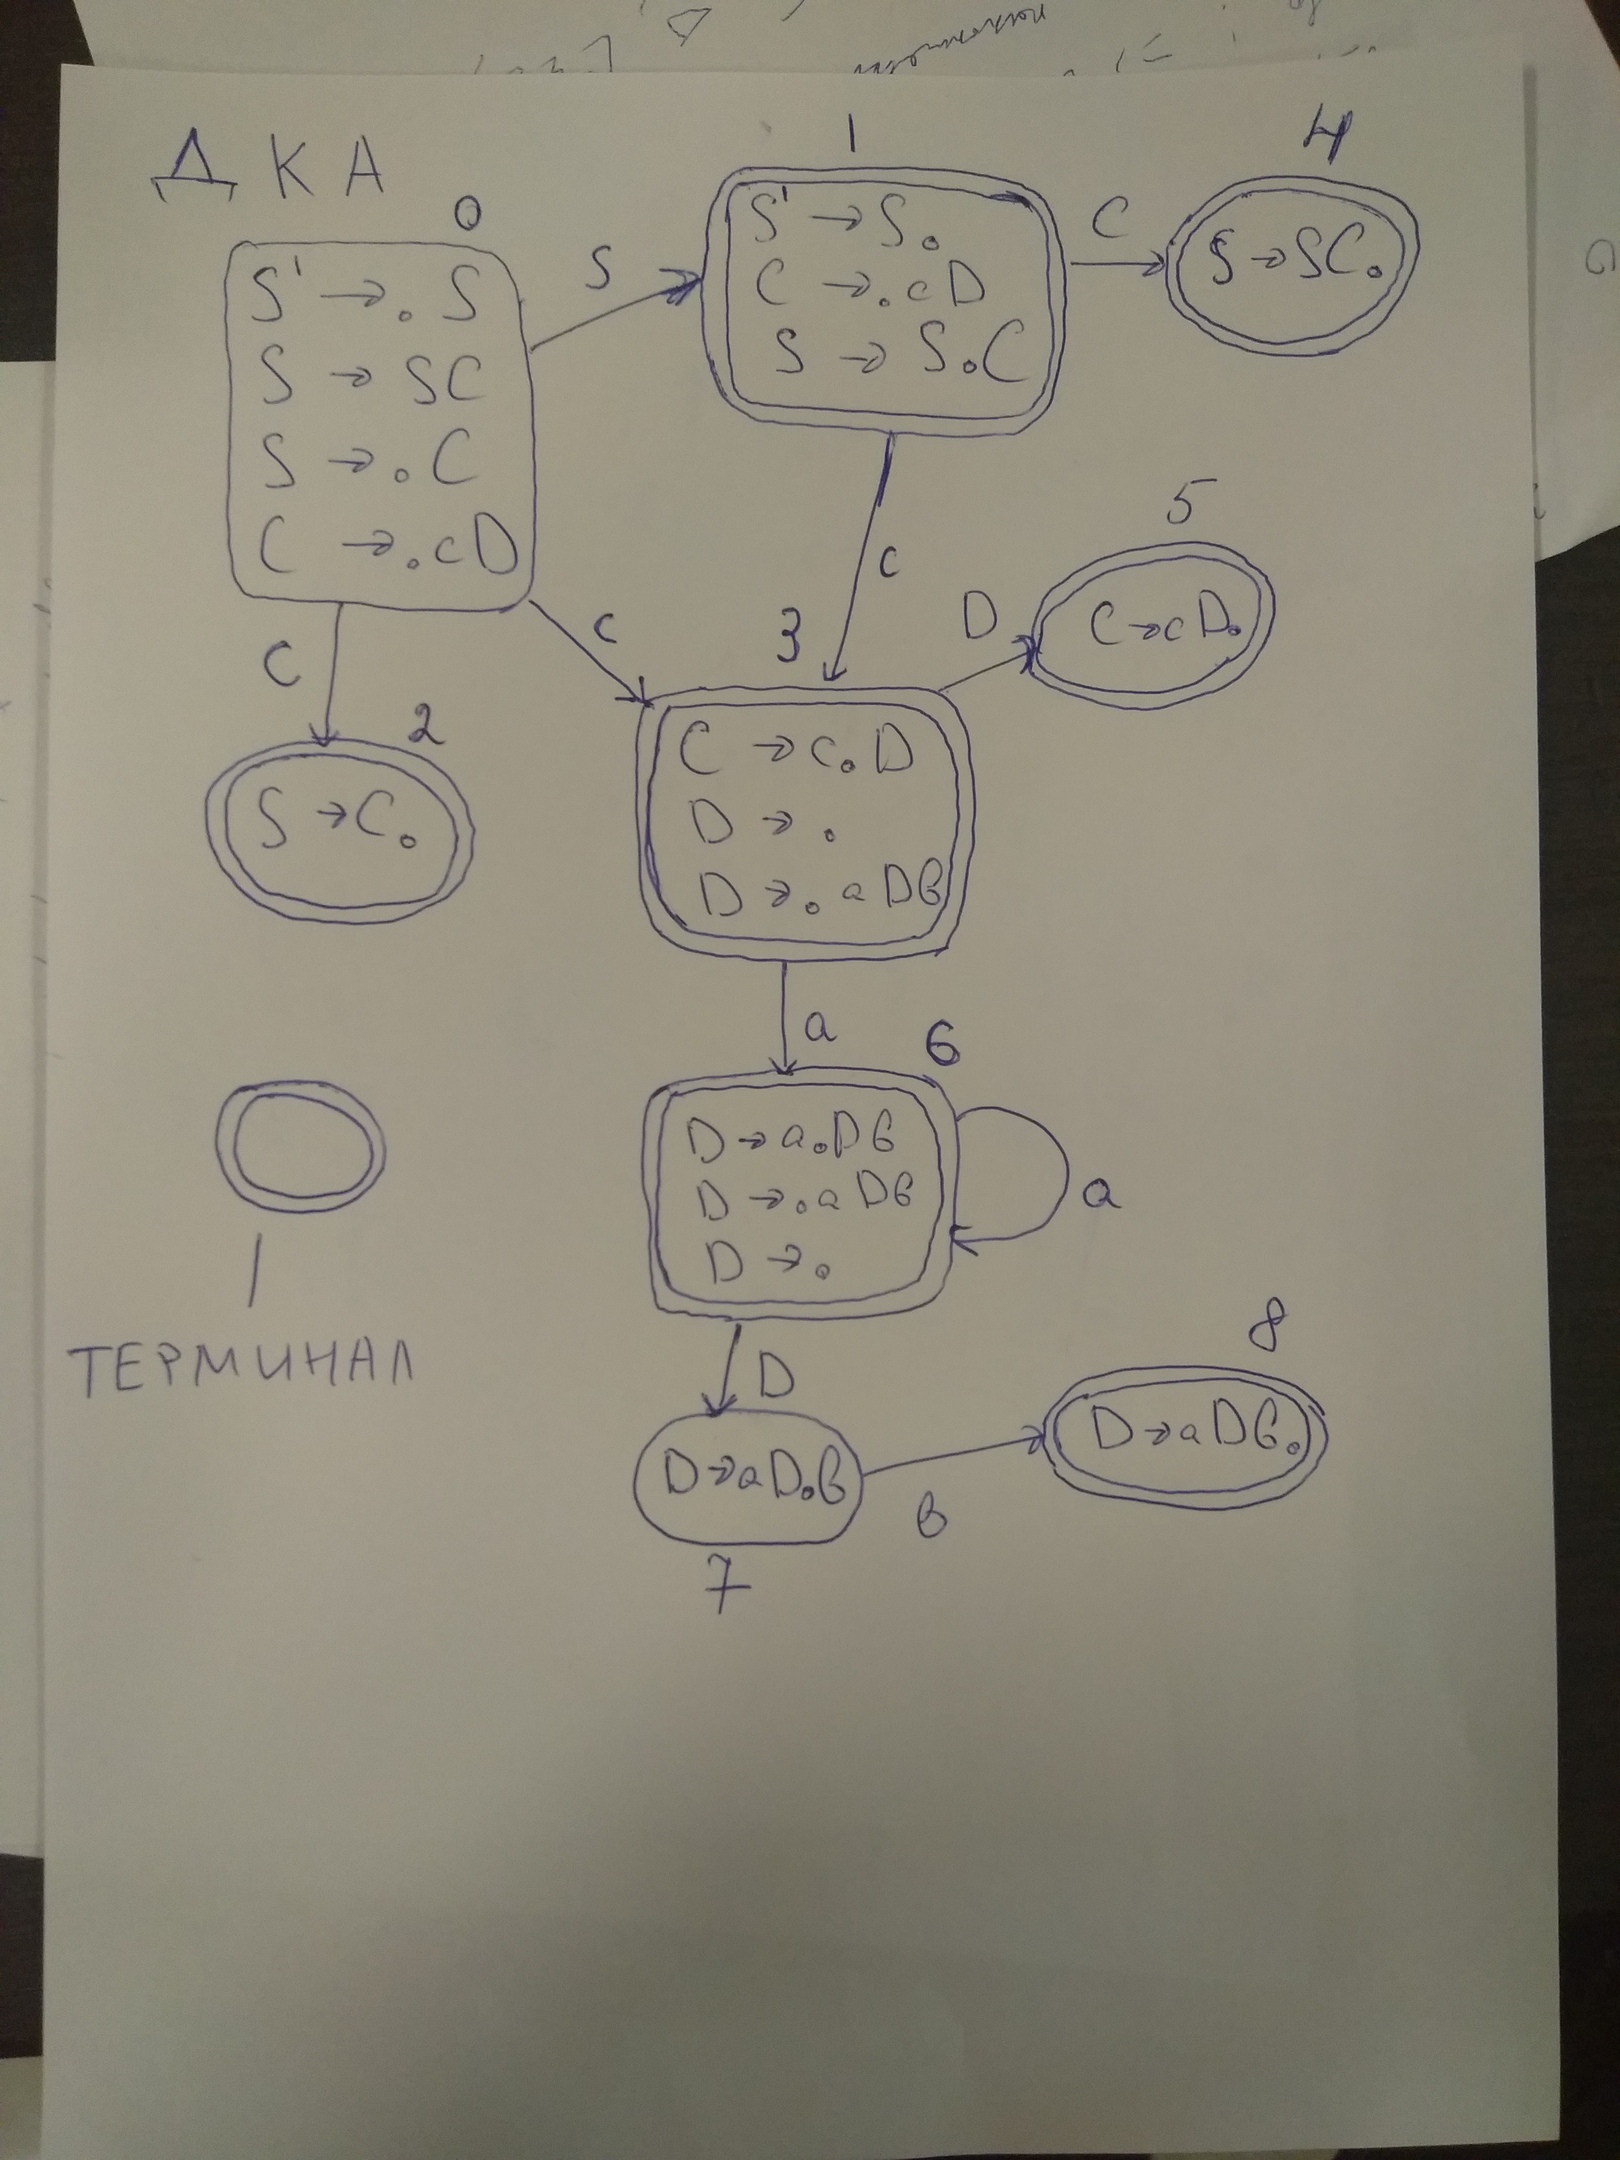 ДКА
0
S' → . S
S → SC
S → . C
C → . cD
S
1
S' → S.
C → . cD
S → S.C
C
4
S → SC.
c
C
c
2
S → C.
3
C → c.D
D → .
D → . aDb
D
5
C → cD.
a
6
D → a.Db
D → . aDb
D → .
a
D
D → aD.b
7
b
8
D → aDb.
ТЕРМИНАЛ